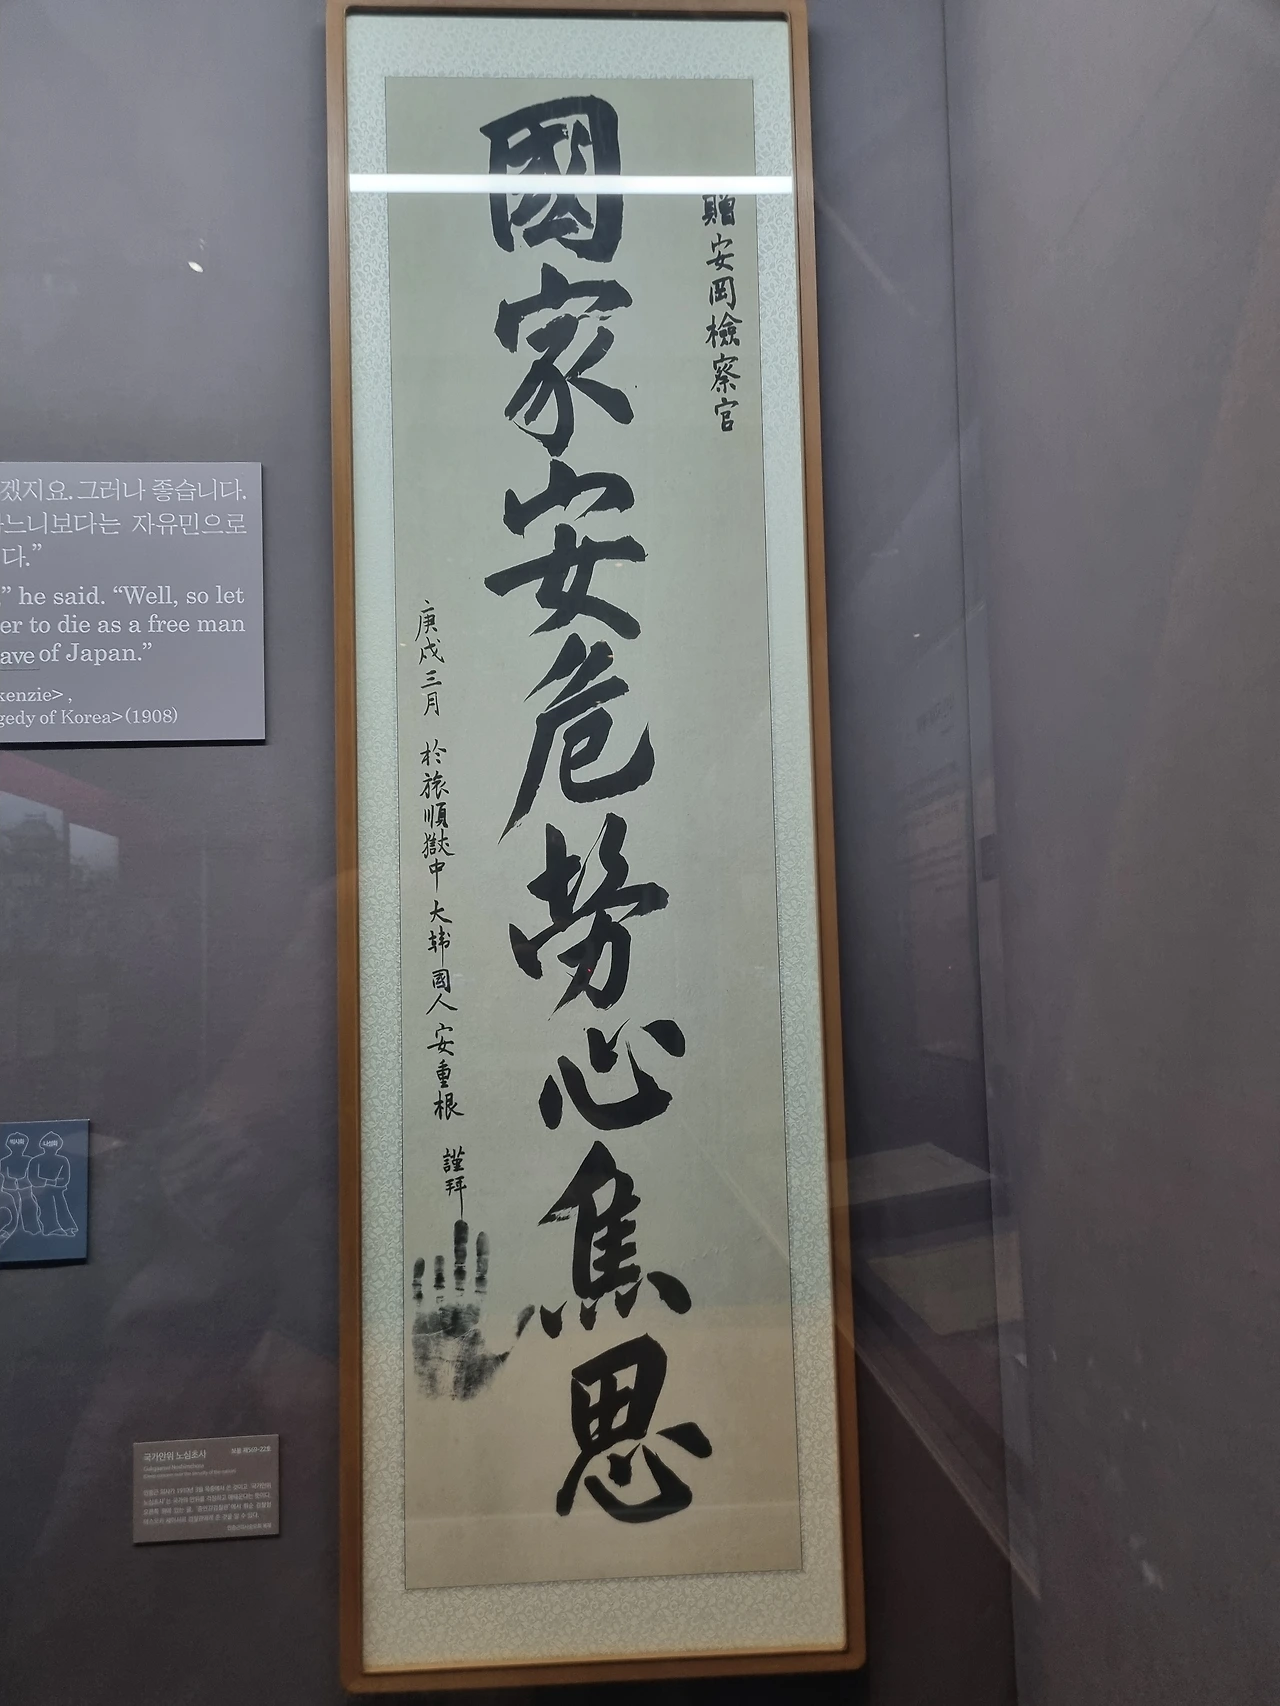 國家安危勞心焦思
贈安岡檢察官
庚戌三月 於旅順獄中 大韓國人 安重根 謹拜
겠지요. 그러나 좋습니다.
느니보다는 자유민으로
다.”
,” he said. “Well, so let
er to die as a free man
ave of Japan.”
kenzie> ,
gedy of Korea>(1908)
국가안위 노심초사
보물 제569-22호